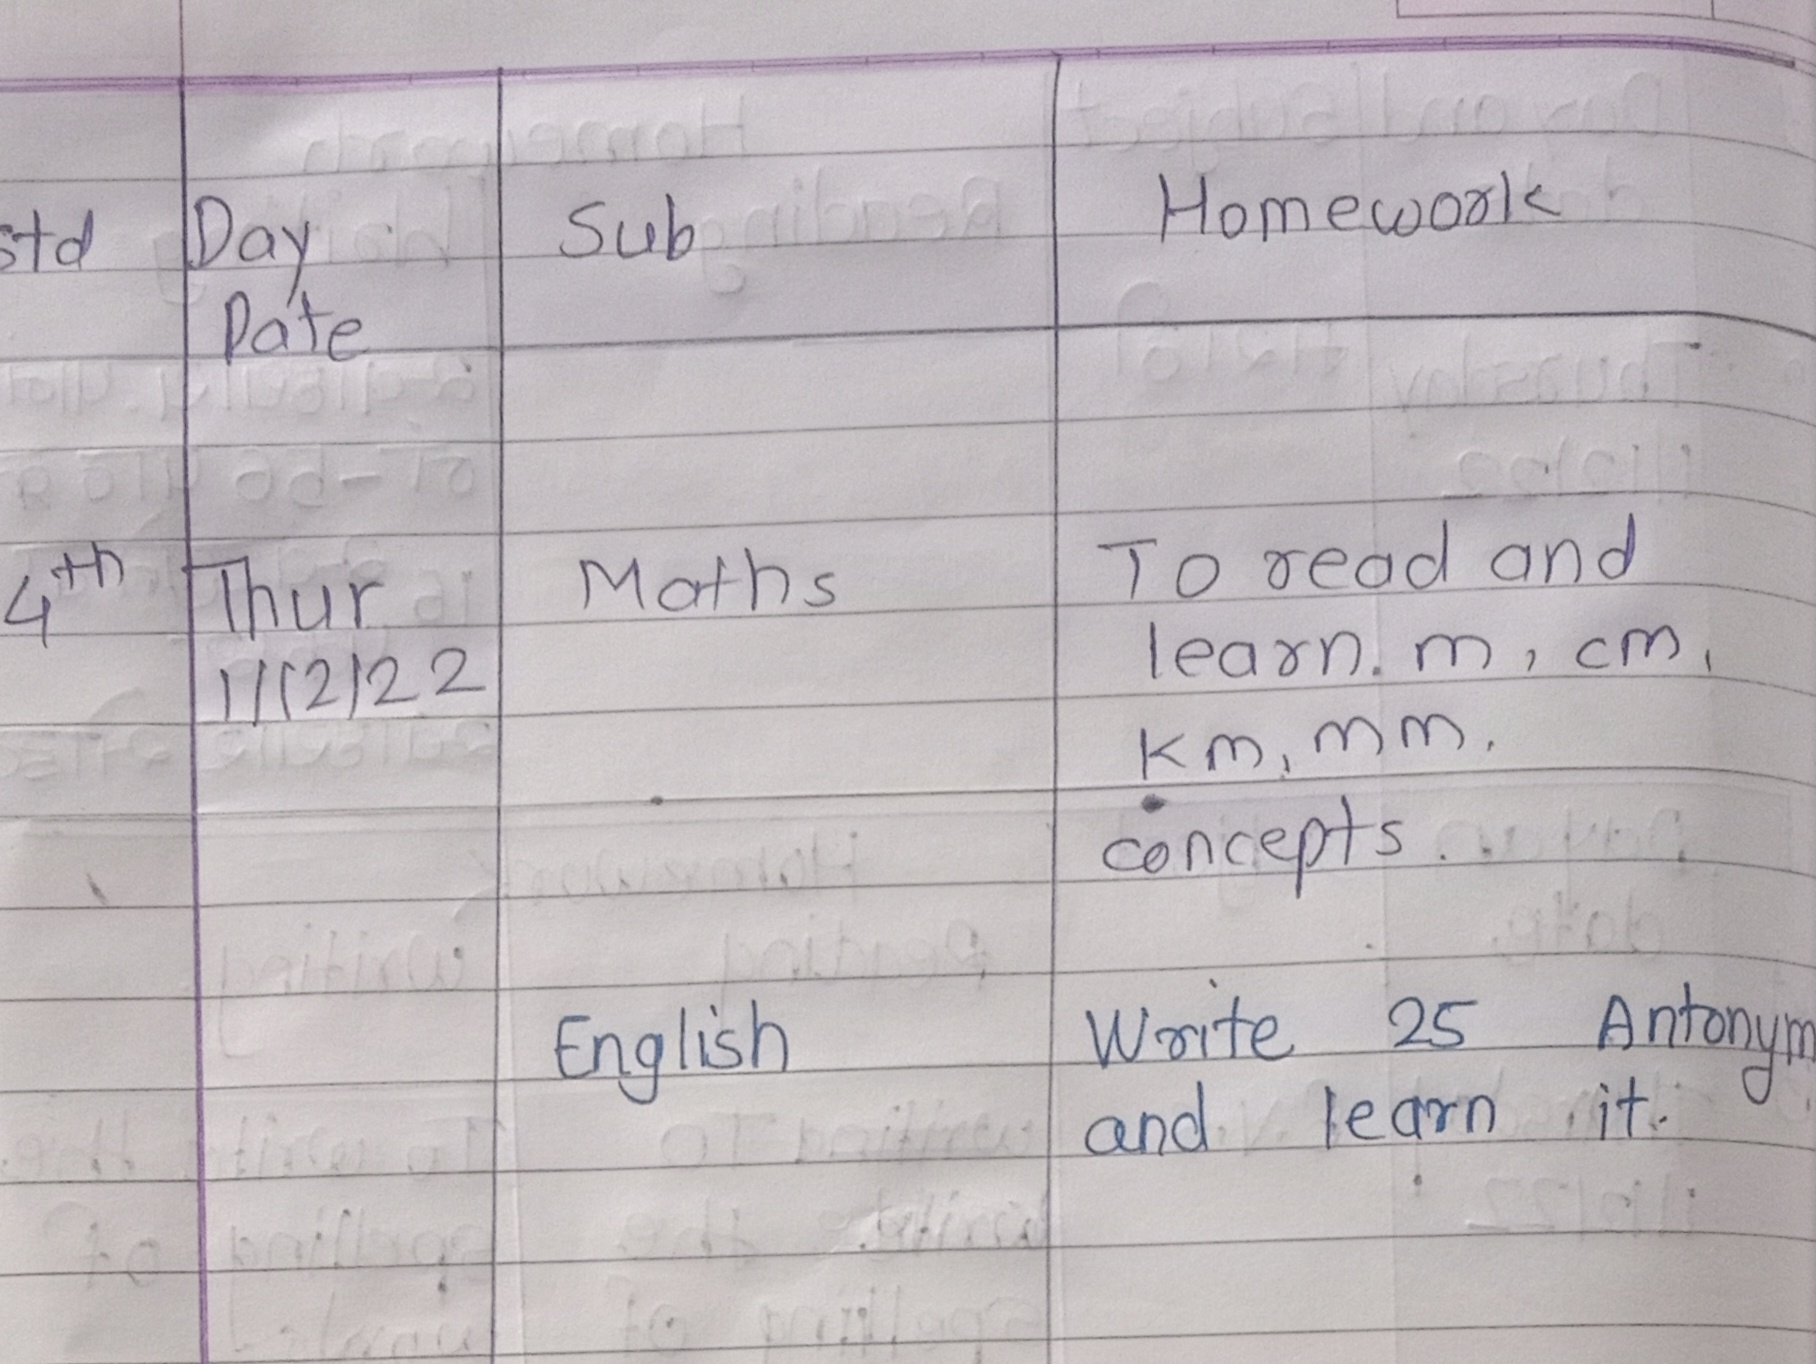 std Day Sub Homework
Date
4th Thur Maths To read and
1/12/22 learn. m, cm,
km, mm.
concepts.
English Write 25 Antonym
and learn it.